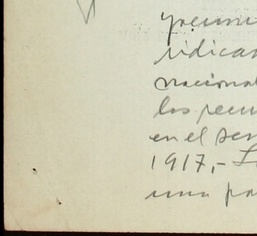 ridicar
nacional
los recur
en el sen
1917,-
una pa